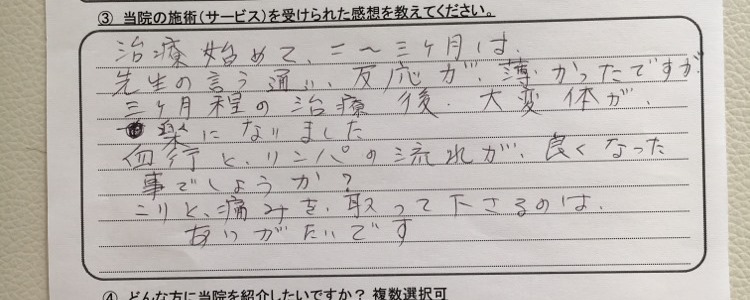 ③ 当院の施術(サービス)を受けられた感想を教えてください。
治療始めて、二〜三ヶ月は、
先生の言う通り、反応が、薄かったですが
三ヶ月程の治療後、大変体が、
楽になりました
血行と、リンパの流れが、良くなった
事でしょうか?
コリと、痛みを、取って下さるのは、
ありがたいです
④ どんな方に当院を紹介したいですか? 複数選択可